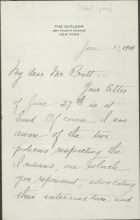 THE OUTLOOK
287 FOURTH AVENUE
NEW YORK
June 3, 1909
My dear Mr. Pratt -
Your letter
of June 27th is at
hand. Of course I am
aware of the two
policies respecting the
Indians, one which
you represent, advocating
their extermination and